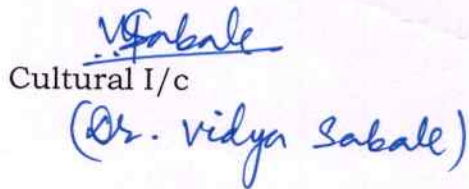 VSabale
Cultural I/c
(Dr. Vidya Sabale)